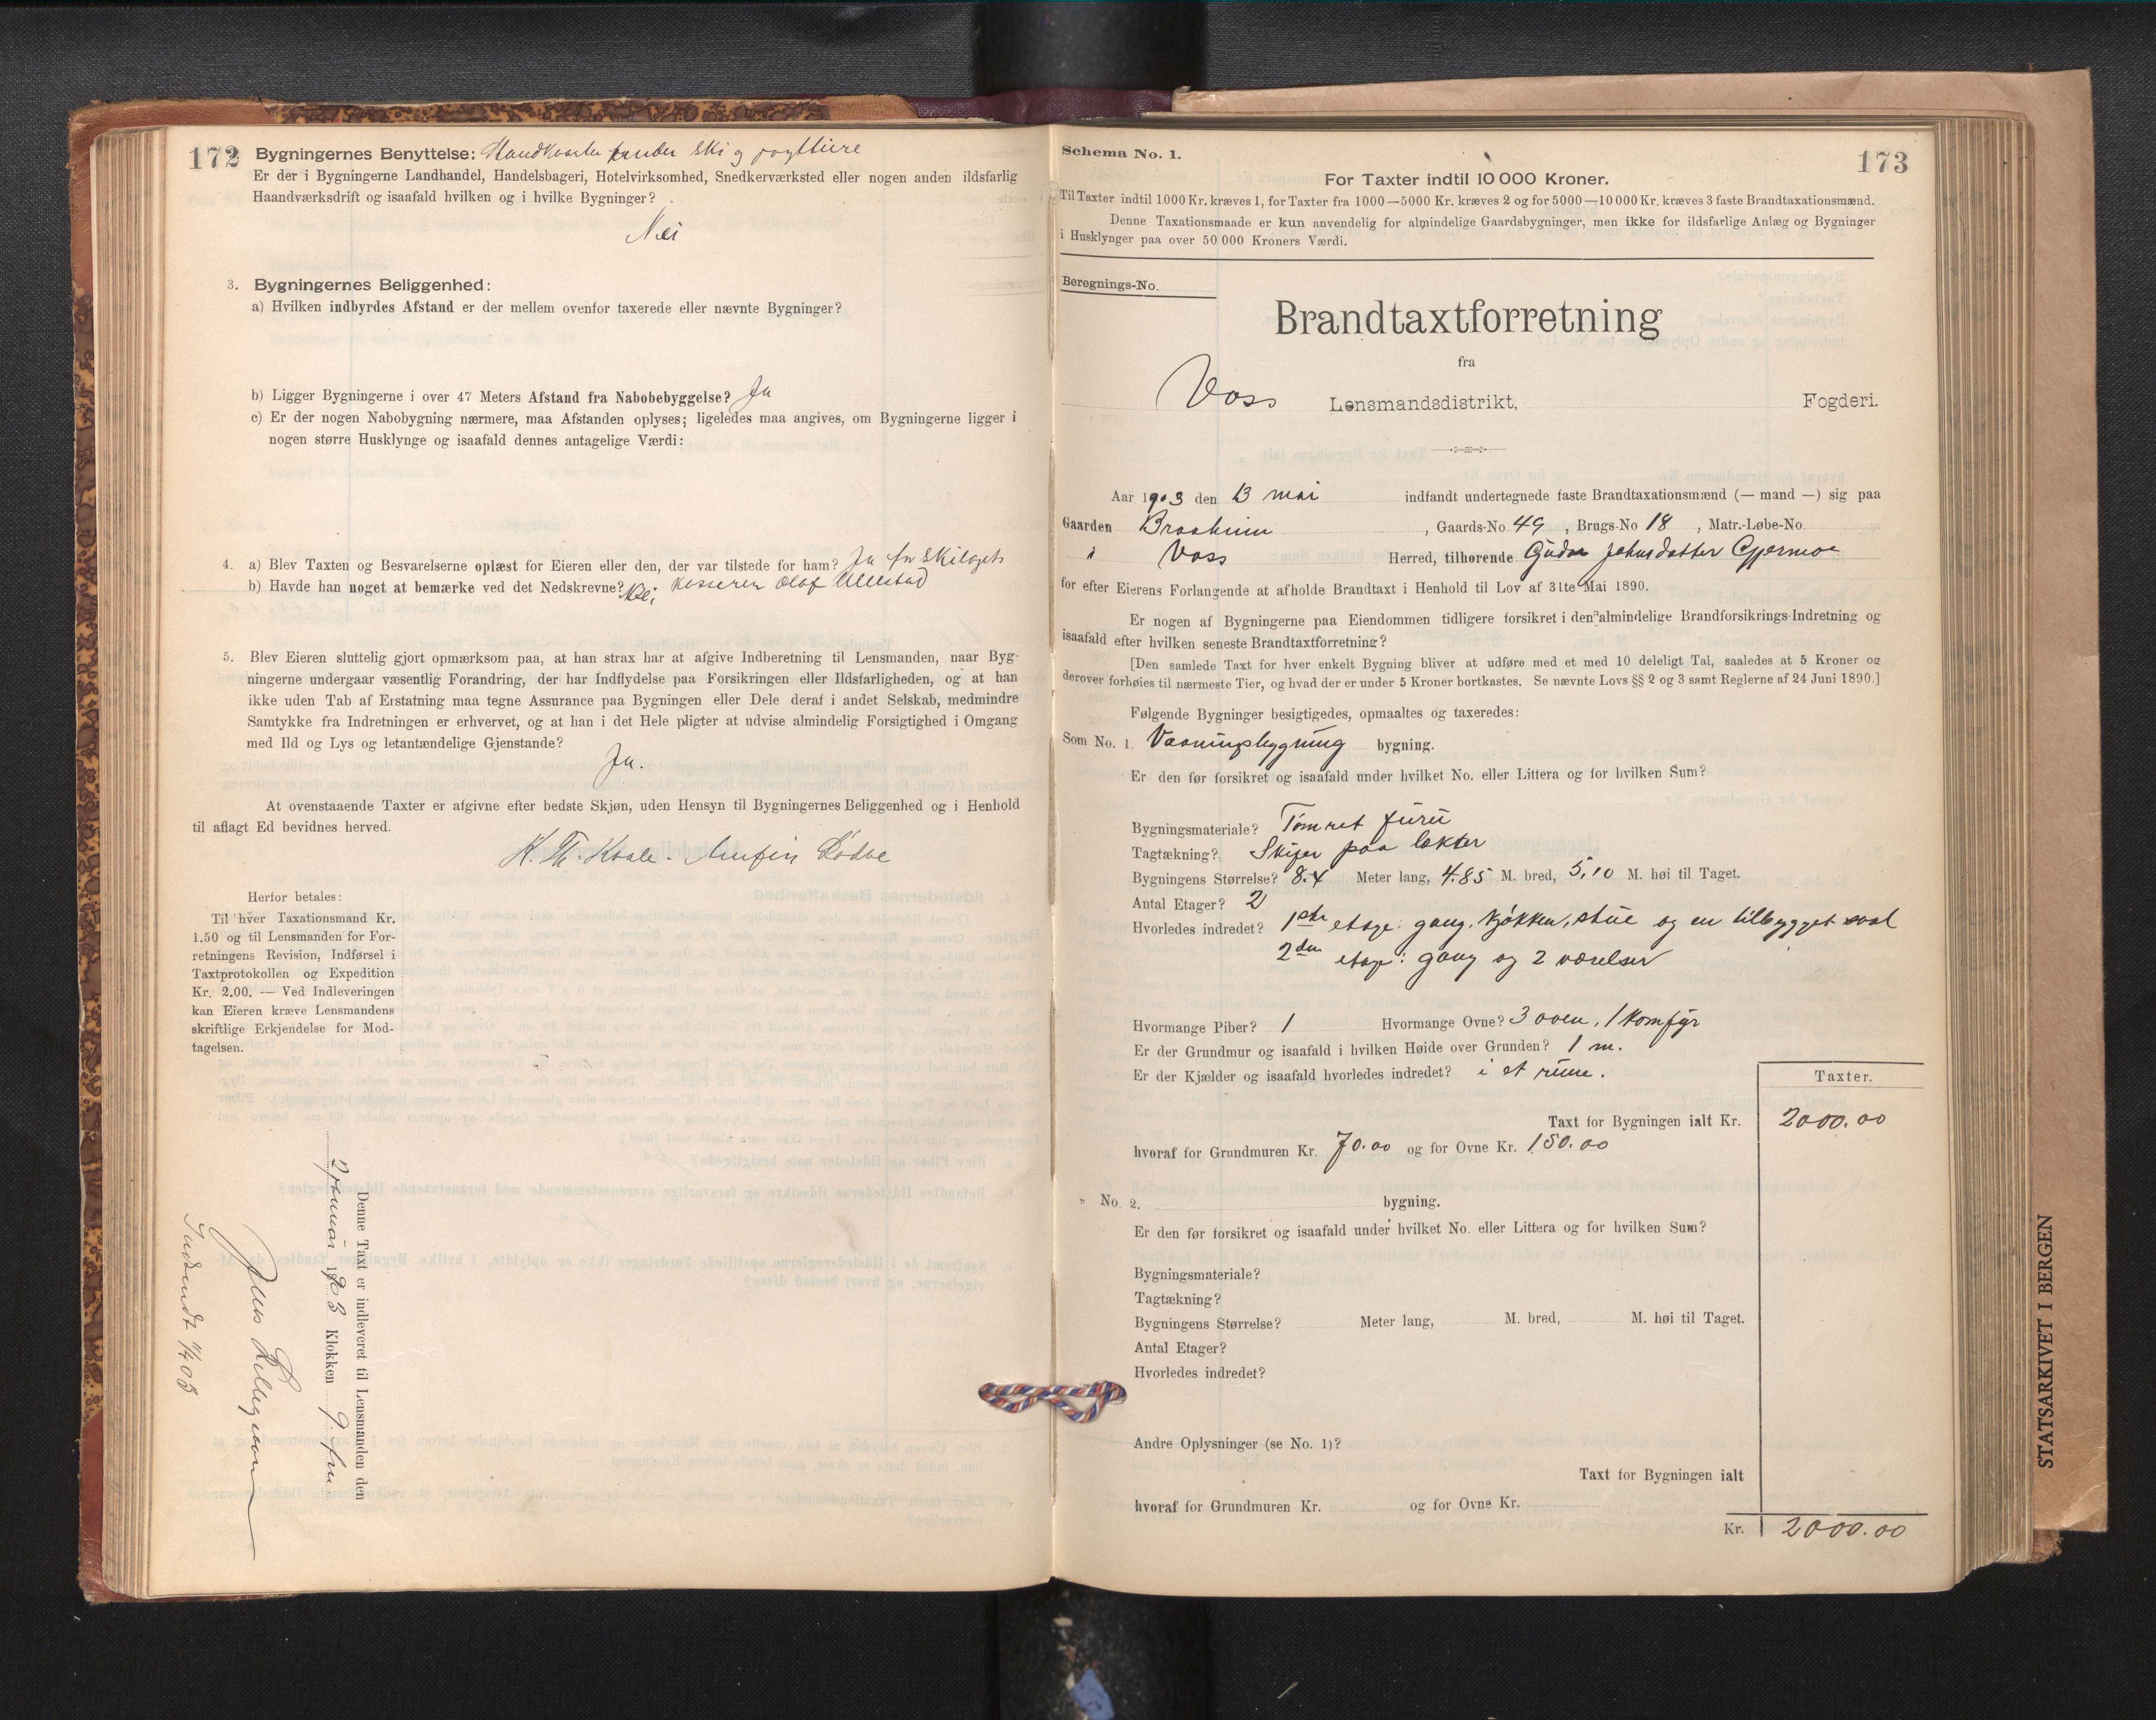 172
Bygningernes Benyttelse: Standkvarter under ski og
Er der i Bygningerne Landhandel, Handelsbageri, Hotelvirksomhed, Snedkerværksted eller nogen anden ildsfarlig
Haandværksdrift og isaafald hvilken og i hvilke Bygninger?
Nei
3. Bygningernes Beliggenhed:
a) Hvilken indbyrdes Afstand er der mellem ovenfor taxerede eller nævnte Bygninger?
b) Ligger Bygningerne i over 47 Meters Afstand fra Nabobebyggelse? Ja
c) Er der nogen Nabobygning nærmere, maa Afstanden oplyses; ligeledes maa angives, om Bygningerne ligger i
nogen større Husklynge og isaafald dennes antagelige Værdi:
4. a) Blev Taxten og Besvarelserne oplæst for Eieren eller den, der var tilstede for ham? Ja for Skilagets
b) Havde han noget at bemærke ved det Nedskrevne? Nei kasserer Olaf Ullestad
5. Blev Eieren sluttelig gjort opmærksom paa, at han strax har at afgive Indberetning til Lensmanden, naar Byg-
ningerne undergaar væsentlig Forandring, der har Indflydelse paa Forsikringen eller Ildsfarligheden, og at han
ikke uden Tab af Erstatning maa tegne Assurance paa Bygningen eller Dele deraf i andet Selskab, medmindre
Samtykke fra Indretningen er erhvervet, og at han i det Hele pligter at udvise almindelig Forsigtighed i Omgang
med Ild og Lys og letantændelige Gjenstande?
Ja.
At ovenstaaende Taxter er afgivne efter bedste Skjøn, uden Hensyn til Bygningernes Beliggenhed og i Henhold
til aflagt Ed bevidnes herved.
K. Th. Kvale. Anfin Rødve
Herfor betales:
Til hver Taxationsmand Kr.
1.50 og til Lensmanden for For-
retningens Revision, Indførsel i
Taxtprotokollen og Expedition
Kr. 2.00. — Ved Indleveringen
kan Eieren kræve Lensmandens
skriftlige Erkjendelse for Mod-
tagelsen.
Denne Taxt er indleveret til Lensmanden den
2 januar 1903 Klokken 9 fm
Jens Lillegraven
Indsendt 1/1 03
Schema No. 1.
173
For Taxter indtil 10 000 Kroner.
Til Taxter indtil 1000 Kr. kræves 1, for Taxter fra 1000—5000 Kr. kræves 2 og for 5000—10 000 Kr. kræves 3 faste Brandtaxationsmænd.
Denne Taxationsmaade er kun anvendelig for almindelige Gaardsbygninger, men ikke for ildsfarlige Anlæg og Bygninger
i Husklynger paa over 50 000 Kroners Værdi.
Beregnings-No.
Brandtaxtforretning
fra
Voss Lensmandsdistrikt, Fogderi.
Aar 1903 den 13 mai indfandt undertegnede faste Brandtaxationsmænd (— mand —) sig paa
Gaarden Braaheim, Gaards-No 49, Brugs-No 18, Matr.-Løbe-No.
i Voss Herred, tilhørende Gudve Johnsdatter Gjermoe
for efter Eierens Forlangende at afholde Brandtaxt i Henhold til Lov af 31te Mai 1890.
Er nogen af Bygningerne paa Eiendommen tidligere forsikret i den almindelige Brandforsikrings-Indretning og
isaafald efter hvilken seneste Brandtaxtforretning?
[Den samlede Taxt for hver enkelt Bygning bliver at udføre med et med 10 deleligt Tal, saaledes at 5 Kroner og
derover forhøies til nærmeste Tier, og hvad der er under 5 Kroner bortkastes. Se nævnte Lovs §§ 2 og 3 samt Reglerne af 24 Juni 1890.]
Følgende Bygninger besigtigedes, opmaaltes og taxeredes:
Som No. 1. Vaaningsbygning bygning.
Er den før forsikret og isaafald under hvilket No. eller Littera og for hvilken Sum?
Bygningsmateriale? Tømret furu
Tagtækning? Skifer paa lækter
Bygningens Størrelse? 8.4 Meter lang, 4.85 M. bred, 5,10 M. høi til Taget.
Antal Etager? 2
Hvorledes indredet? 1ste etage: gang, kjøkken, stue og en tilbygget sval
2den etage: gang og 2 værelser
Hvormange Piber? 1 Hvormange Ovne? 3 oven, 1 komfyr
Er der Grundmur og isaafald i hvilken Høide over Grunden? 1 m.
Er der Kjælder og isaafald hvorledes indredet? i et rum.
Taxter.
Taxt for Bygningen ialt Kr. 2000.00
hvoraf for Grundmuren Kr. 70.00 og for Ovne Kr. 150.00
" No. 2. bygning.
Er den før forsikret og isaafald under hvilket No. eller Littera og for hvilken Sum?
Bygningsmateriale?
Tagtækning?
Bygningens Størrelse? Meter lang, M. bred, M. høi til Taget.
Antal Etager?
Hvorledes indredet?
Andre Oplysninger (se No. 1)?
Taxt for Bygningen ialt
hvoraf for Grundmuren Kr. og for Ovne Kr.
Kr. 2000.00
STATSARKIVET I BERGEN